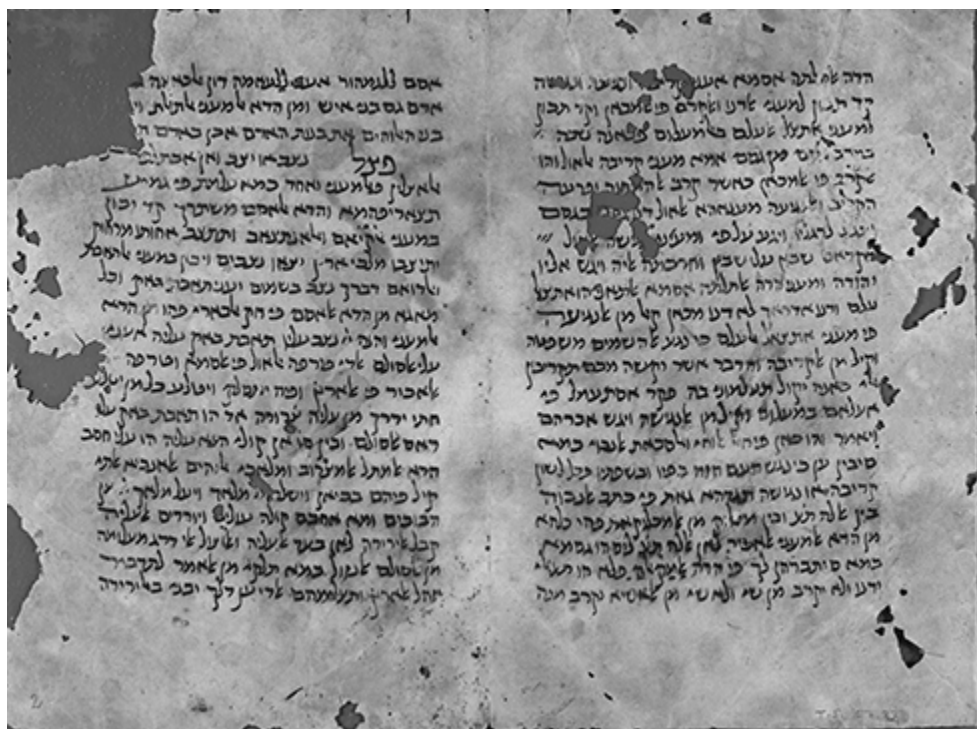 הדה אלתלתה אסמא אעני קריבה ונגיעה ונגישה
קד תכון למעני אדנו ואקרב פי אלמכאן וקד תכון
למעני אתצאל אלעלם באלמעלום פכאנה שבה
בקרב גסם מן גסם אמא מעני קריבה אלאול והו
אלקרב פי אלמכאן כאשר קרב אל המחנה ופרעה
הקריב ואלנגיעה מענאהא אלאול דנו בגסם
ותגע לרגליו ויגע על פי ומעני נגישה אלאול
אקדאם שכץ עלי שכץ וחרכתה אליה ויגש אליו
יהודה ומעני הדה אלתלתה אסמא אלתאני הו אתצאל
עלם ודנו אדראך לא דנו מכאן קיל מן אלנגיעה
פי מעני אתצאל אלעלם כי נגע אל השמים משפטה
וקיל מן אלקריבה והדבר אשר יקשה מכם תקריבון
אלי כאנה יקול תעלמוני בה פקד אסתעמל פי
אעלאם במעלום וקיל מן אלנגישה ויגש אברהם
ויאמר והו כאן פי חאל אלוחי ואלסבאת אלנבוי כמא
סיבין יען כי נגש העם הזה בפיו ובשפתיו פכל לשון
קריבה או נגישה תגדהא גאת פי כתב אלנבוה
בין אללה תע׳ ובין מכלוק מן אלמכלוקאת פהי כלהא
מן הדא אלמעני אלאכיר לאן אללה תע׳ ליס הו גסמא
כמא סיתברהן לך פי הדה אלמקאלה פלא הו תעאלי
ידנו ולא יקרב מן שי ולא שי מן אלאשיא יקרב מנה
אסם ללגמהור אעני ללעאמה דון אלכאצה
אדם גם בני איש ומן הדא אלמעני אלתאלת
בני האלהים את בנות האדם אכן כאדם
פצל נצב או יצב ואן
אלאצלין פאלמעני ואחד כמא עלמת פי גמיע
תצאריפהמא והדא אלאסם משתרך קד יכון
במעני אלקיאם ואלאנתצאב ותתצב אחותו מרחוק
יתיצבו מלכי ארץ יצאו נצבים ויכון במעני אלתבאת
ואלדואם דברך נצב בשמים יעני תאבת באק וכל
מא גא מן הדא אלאסם פי חק אלבארי פהו מן הדא
אלמעני והנה יי׳ נצב עליו תאבת באק עליה אעני
עלי אלסולם אלדי טרפה אלאול פי אלסמא וטרפה
אלאכיר פי אלארץ ופיה יתסלק ויטלע כל מן יטלע
חתי ידרך מן עליה צרורה אד הו תאבת באק עלי
ראס אלסולם ובין הו אן קולי הנא עליה הו עלי חסב
הדא אלמתל אלמצרוב ומלאכי אלהים אלאנביא אלדי
קיל פיהם בביאן וישלח מלאך ויעל מלאך יי׳ מן
הבוכים ומא אחכם קולה עולים ויורדים אלעליה
קבל אלירידה לאן בעד אלעליה ואלוצול אלי דרג מעלומה
מן אלסולם אלנזול במא תלקי מן אלאמר לתדביר
אהל אלארץ ותעלימהם אלדי ען דלך וכני באלירידה